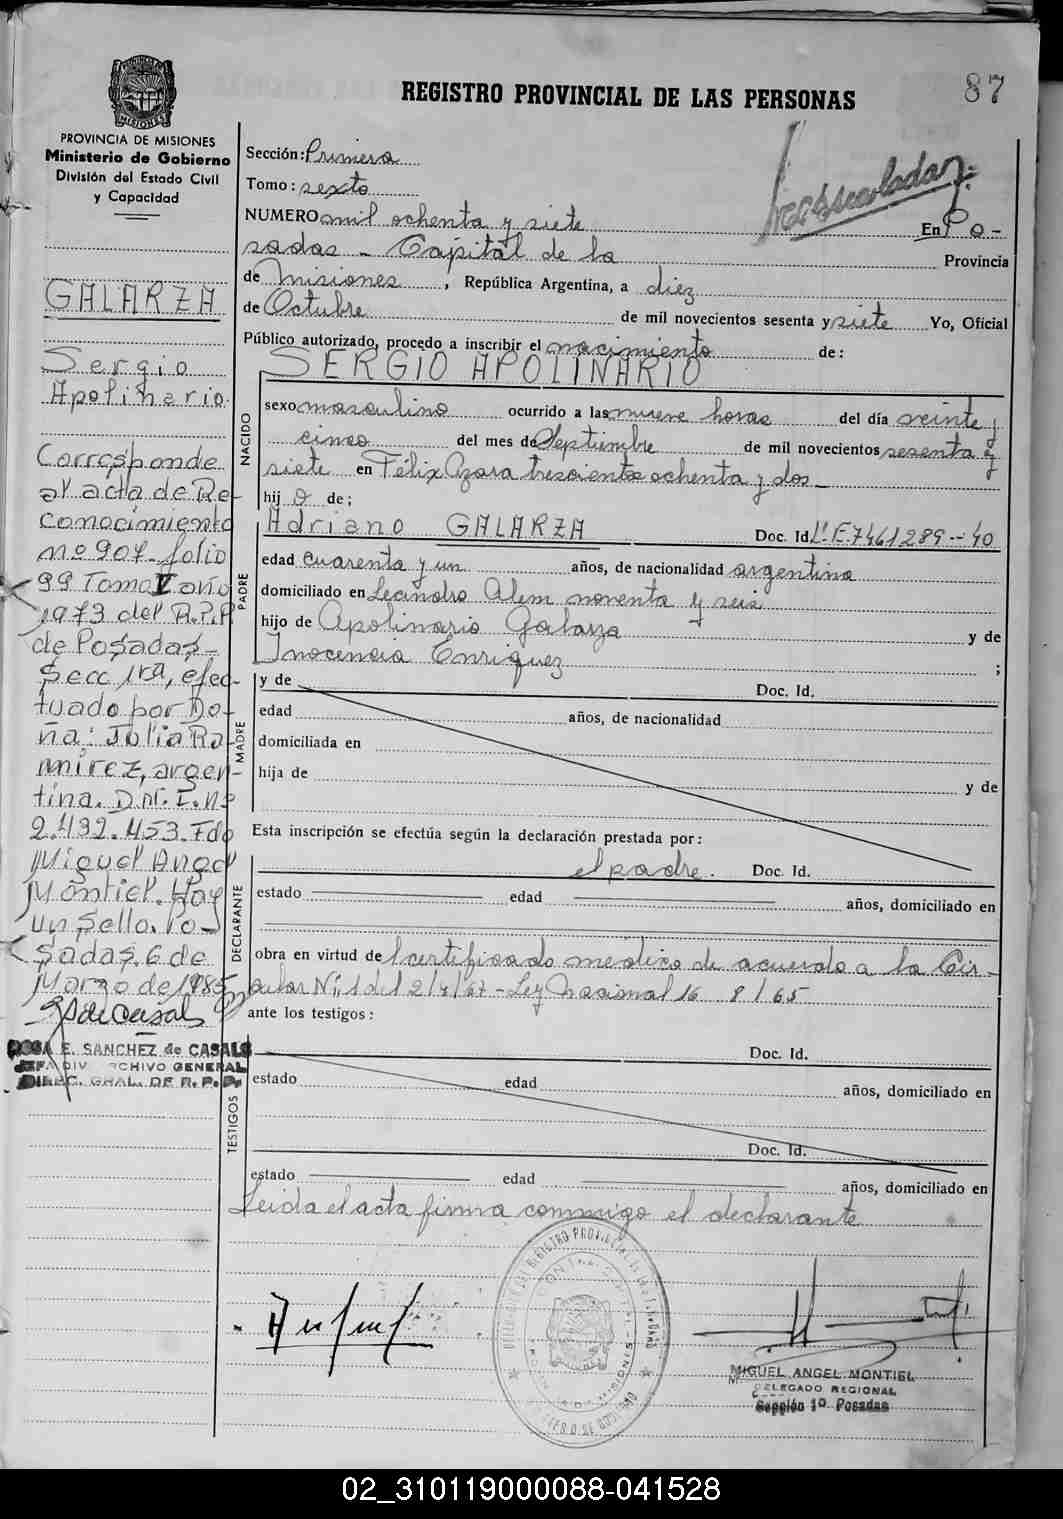 87
REGISTRO PROVINCIAL DE LAS PERSONAS
PROVINCIA DE MISIONES
Ministerio de Gobierno
División del Estado Civil
y Capacidad
GALARZA
Sergio
Apolinario
Corresponde
al acta de Re-
conocimiento
nº 907 folio
99 Tomo V año
1973 del R.P.P
de Posadas-
Secc 1ra, efec-
tuado por Do-
ña: Julia Ra-
mirez, argen-
tina. D.N.I. Nº
2.492.453. Fdo
Miguel Angel
Montiel. Hay
un sello. Po-
sadas, 6 de
Marzo de 1985
ROSA E. SANCHEZ de CASALS
JEFA DIV. ARCHIVO GENERAL
DIREC. GRAL. DE R. P. P.
Sección: Primera
Tomo: sexto
NUMERO mil ochenta y siete En Po-
sadas - Capital de la Provincia
de Misiones, República Argentina, a diez
de Octubre de mil novecientos sesenta y siete Yo, Oficial
Público autorizado, procedo a inscribir el nacimiento de:
SERGIO APOLINARIO
NACIDO
sexo masculino ocurrido a las nueve horas del día veinte y
cinco del mes de Septiembre de mil novecientos sesenta y
siete en Félix Azara trescientos ochenta y dos-
hij o de;
PADRE
Adriano GALARZA Doc. Id. L.E. 7461289 -- 40
edad cuarenta y un años, de nacionalidad argentina
domiciliado en Leandro Alem noventa y seis
hijo de Apolinario Galarza y de
Inocencia Enriquez ;
MADRE
y de Doc. Id.
edad años, de nacionalidad
domiciliada en
hija de y de
Esta inscripción se efectúa según la declaración prestada por:
DECLARANTE
el padre. Doc. Id.
estado edad años, domiciliado en
obra en virtud de l certificado médico de acuerdo a la Cir-
cular Nº 1 del 2/4/67 - Ley Nacional 16 8/65
ante los testigos:
TESTIGOS
Doc. Id.
estado edad años, domiciliado en
Doc. Id.
estado edad años, domiciliado en
Leida el acta firma conmigo el declarante
MIGUEL ANGEL MONTIEL
DELEGADO REGIONAL
Sección 1º Posadas
02_310119000088-041528